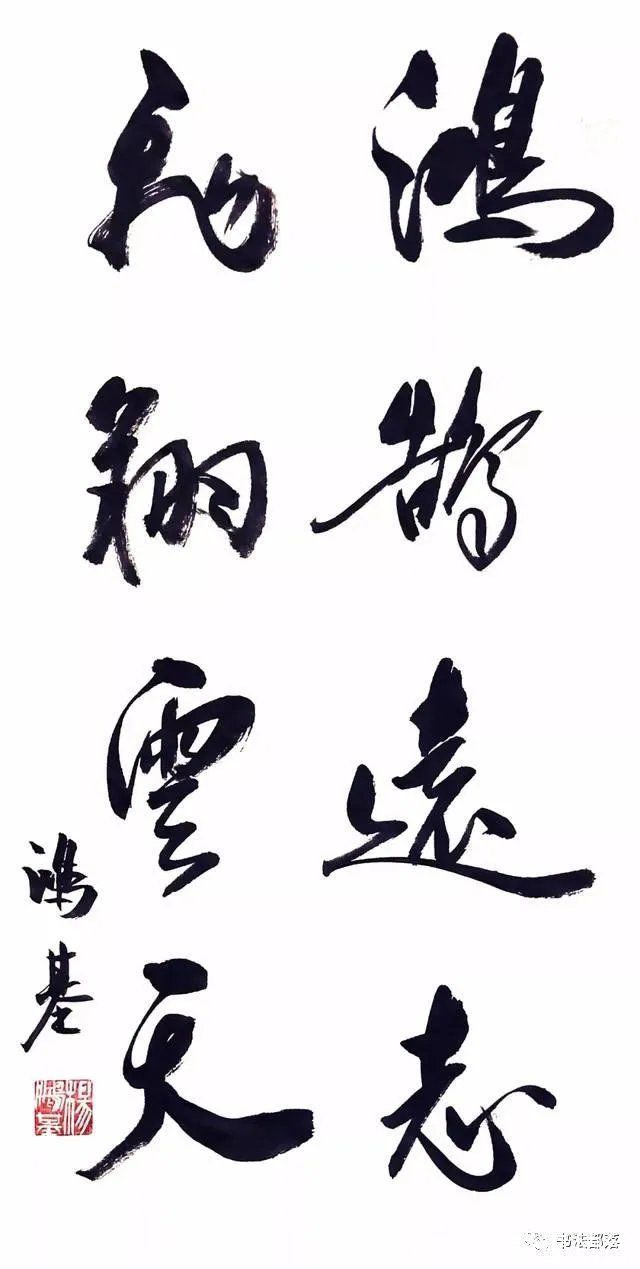 鴻鵠遠志
翔雲天
鴻基
楊
鴻基
书法部落